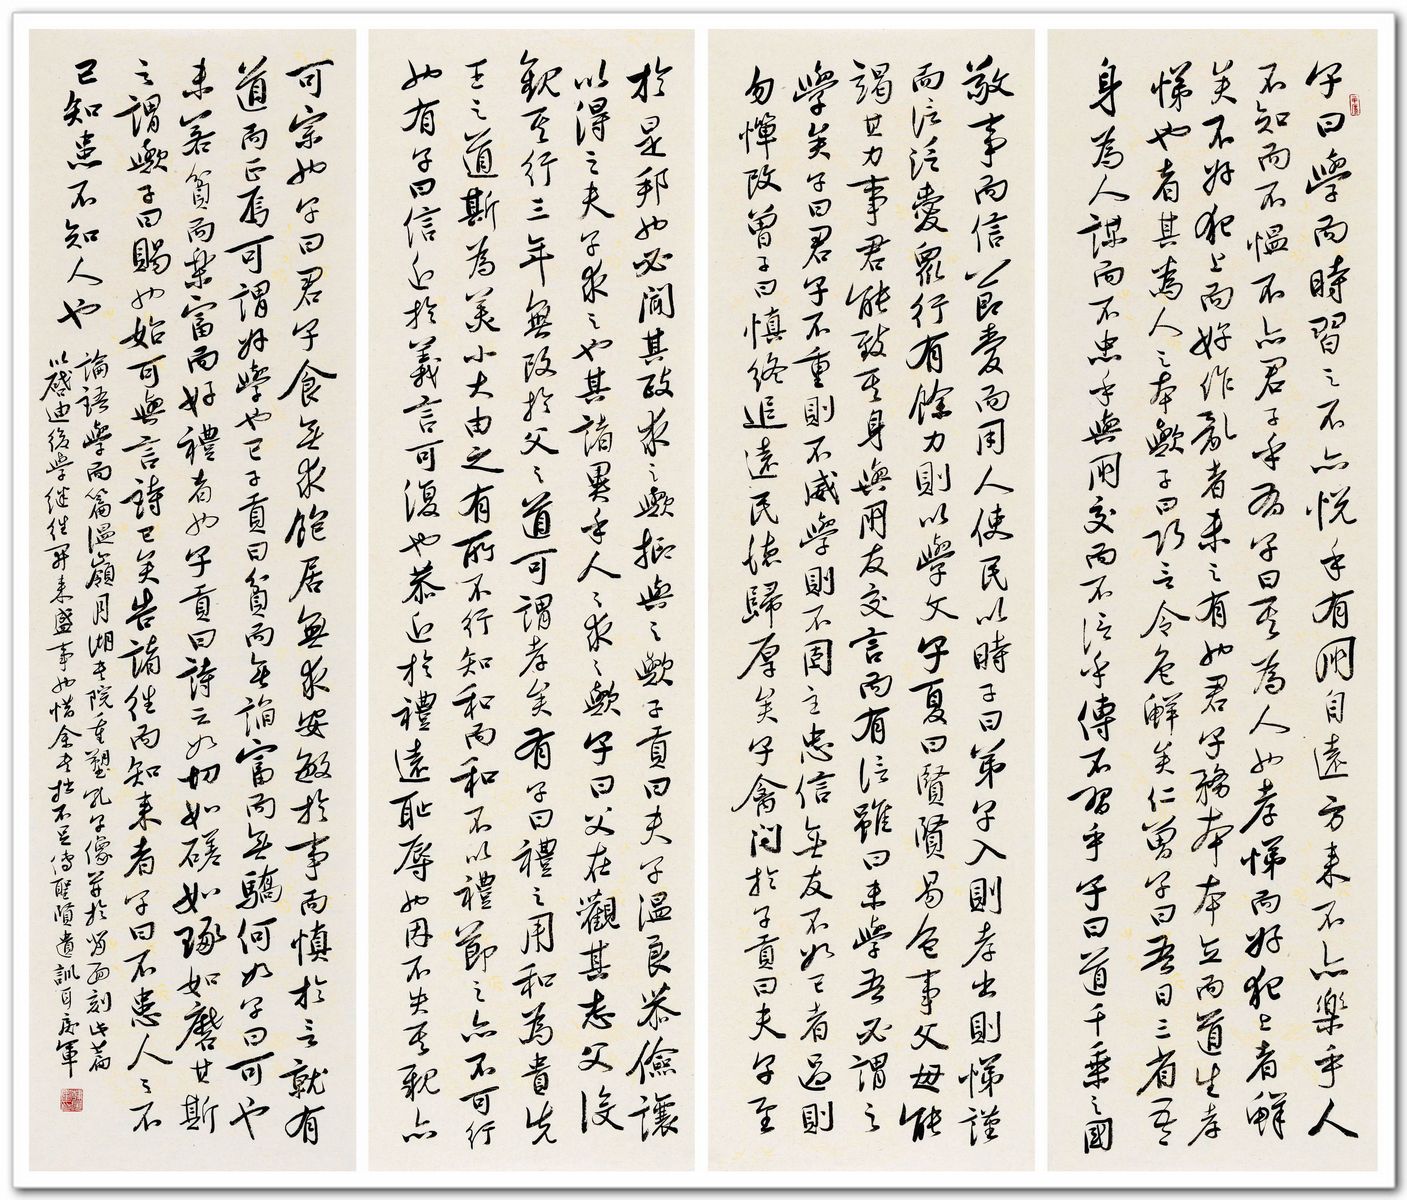 子曰學而時習之不亦悅乎有朋自遠方來不亦樂乎人
不知而不慍不亦君子乎有子曰其為人也孝悌而好犯上者鮮
矣不好犯上而好作亂者未之有也君子務本本立而道生孝
悌也者其為人之本歟子曰巧言令色鮮矣仁曾子曰吾日三省吾
身為人謀而不忠乎與朋交而不信乎傳不習乎子曰道千乘之國
敬事而信節愛而用人使民以時子曰弟子入則孝出則悌謹
而信泛愛眾行有餘力則以學文子夏曰賢賢易色事父母能
竭其力事君能致其身與朋友交言而有信雖曰未學吾必謂之
學矣子曰君子不重則不威學則不固主忠信無友不如己者過則
勿憚改曾子曰慎終追遠民德歸厚矣子禽問於子貢曰夫子至
於是邦也必聞其政求之歟抑與之歟子貢曰夫子溫良恭儉讓
以得之夫子求之也其諸異乎人之求之歟子曰父在觀其志父沒
觀其行三年無改於父之道可謂孝矣有子曰禮之用和為貴先
王之道斯為美小大由之有所不行知和而和不以禮節之亦不可行
也有子曰信近於義言可復也恭近於禮遠恥辱也因不失其親亦
可宗也子曰君子食無求飽居無求安敏於事而慎於言就有
道而正焉可謂好學也已子貢曰貧而無諂富而無驕何如子曰可也
未若貧而樂富而好禮者也子貢曰詩云如切如磋如琢如磨其斯
之謂歟子曰賜也始可與言詩已矣告諸往而知來者子曰不患人之不
己知患不知人也
論語學而篇溫嶺月湖書院重塑孔子像并於背面刻此篇
以啟迪後學繼往開來盛事也惜余書拙不足傳聖賢遺訓耳慶軍